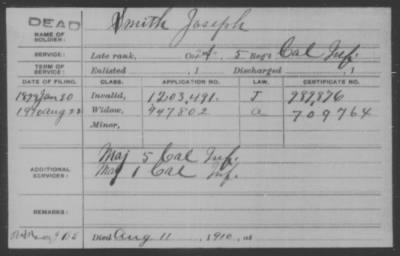 DEAD
NAME OF SOLDIER: Smith Joseph
SERVICE: Late rank, Co. 5 Reg't Cal Inf.
TERM OF SERVICE: Enlisted , 1 Discharged , 1
DATE OF FILING. CLASS. APPLICATION NO. LAW. CERTIFICATE NO.
Jan 20 Invalid, 1203,491. J 987,876
1910 Aug 22 Widow, 947802 a 709764
Minor,
ADDITIONAL SERVICES:
Maj 5 Cal Inf.
Maj 1 Cal Inf.
REMARKS:
Died Aug 11, 1910, at